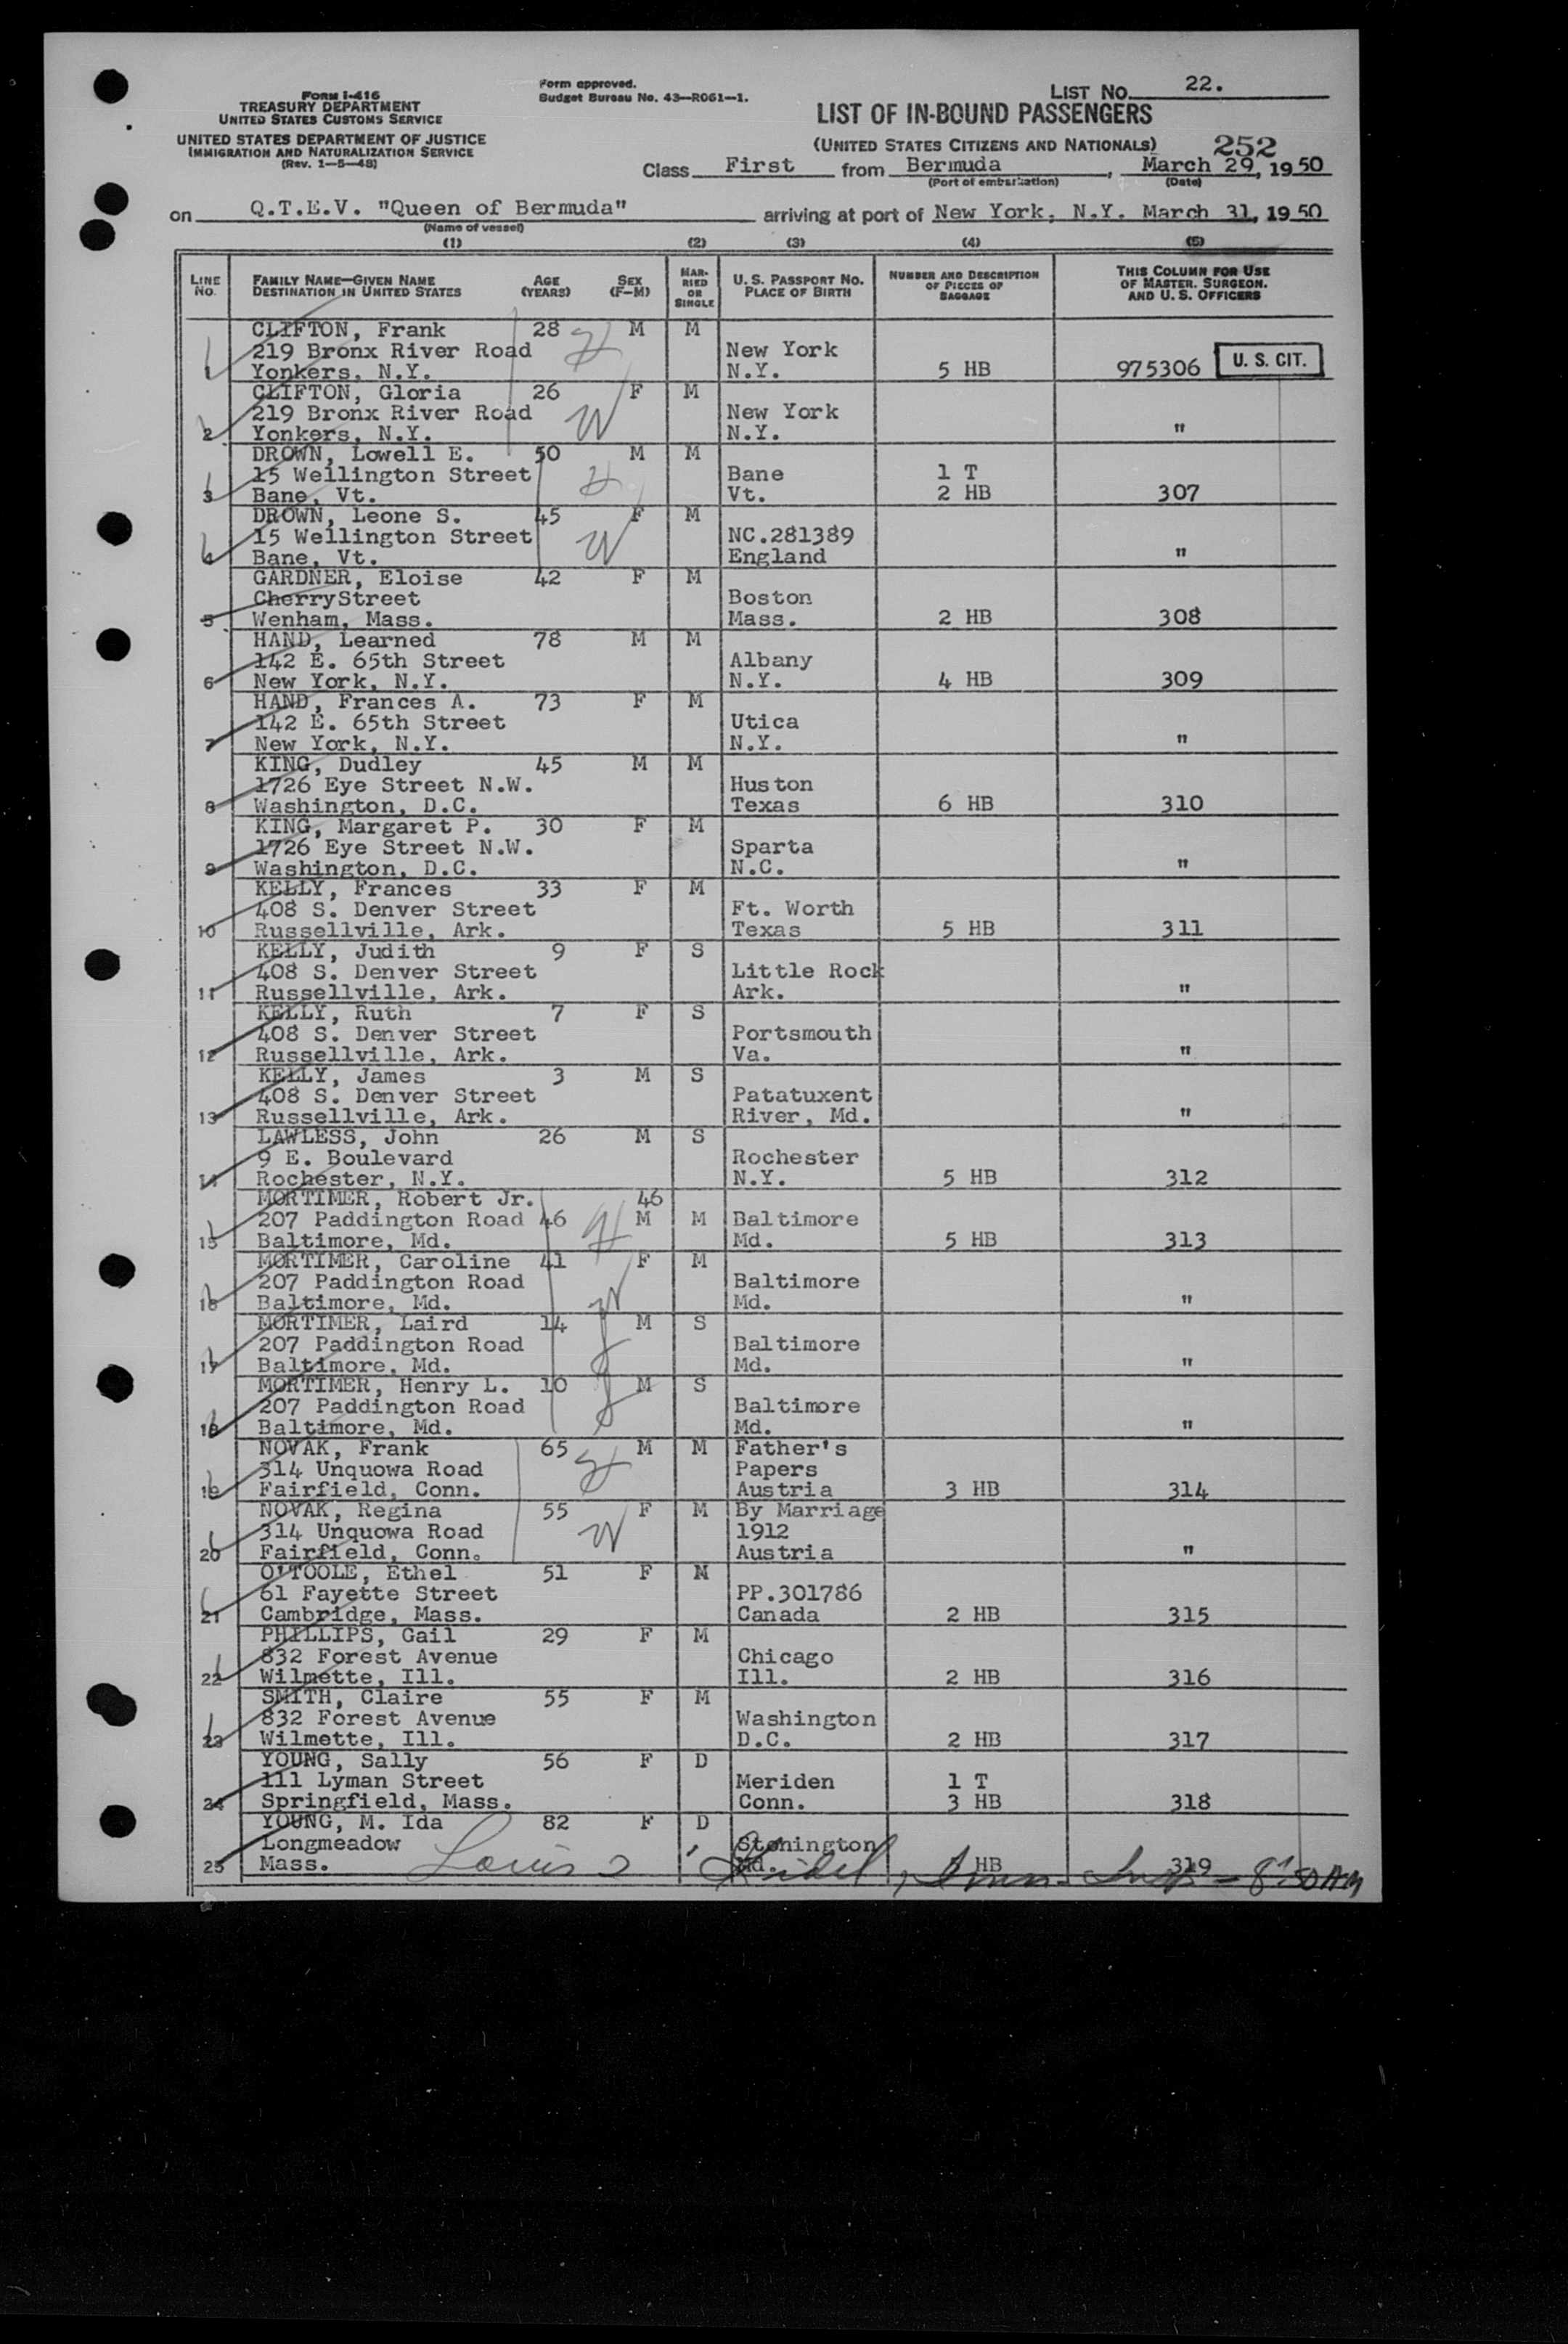 FORM I-416
TREASURY DEPARTMENT
UNITED STATES CUSTOMS SERVICE
UNITED STATES DEPARTMENT OF JUSTICE
IMMIGRATION AND NATURALIZATION SERVICE
(Rev. 1-5-48)
Form approved.
Budget Bureau No. 43-R061-1.
LIST NO. 22.
LIST OF IN-BOUND PASSENGERS
(UNITED STATES CITIZENS AND NATIONALS) 252
Class First from Bermuda, March 29, 1950
(Port of embarkation) (Date)
on Q.T.E.V. "Queen of Bermuda" arriving at port of New York, N.Y. March 31, 1950
(Name of vessel)
(1) (2) (3) (4) (5)
LINE NO. FAMILY NAME—GIVEN NAME DESTINATION IN UNITED STATES AGE (YEARS) SEX (F-M) MARRIED OR SINGLE U. S. PASSPORT NO. PLACE OF BIRTH NUMBER AND DESCRIPTION OF PIECES OF BAGGAGE THIS COLUMN FOR USE OF MASTER, SURGEON, AND U. S. OFFICERS
CLIFTON, Frank 28 H M M
219 Bronx River Road New York
1 Yonkers, N.Y. N.Y. 5 HB 975306 U. S. CIT.
CLIFTON, Gloria 26 F M
219 Bronx River Road W New York
2 Yonkers, N.Y. N.Y. "
DROWN, Lowell E. 50 M M
15 Wellington Street H Bane 1 T
3 Bane, Vt. Vt. 2 HB 307
DROWN, Leone S. 45 F M
15 Wellington Street W NC.281389
4 Bane, Vt. England "
GARDNER, Eloise 42 F M
CherryStreet Boston
5 Wenham, Mass. Mass. 2 HB 308
HAND, Learned 78 M M
142 E. 65th Street Albany
6 New York, N.Y. N.Y. 4 HB 309
HAND, Frances A. 73 F M
142 E. 65th Street Utica
7 New York, N.Y. N.Y. "
KING, Dudley 45 M M
1726 Eye Street N.W. Huston
8 Washington, D.C. Texas 6 HB 310
KING, Margaret P. 30 F M
1726 Eye Street N.W. Sparta
9 Washington, D.C. N.C. "
KELLY, Frances 33 F M
408 S. Denver Street Ft. Worth
10 Russellville, Ark. Texas 5 HB 311
KELLY, Judith 9 F S
408 S. Denver Street Little Rock
11 Russellville, Ark. Ark. "
KELLY, Ruth 7 F S
408 S. Denver Street Portsmouth
12 Russellville, Ark. Va. "
KELLY, James 3 M S
408 S. Denver Street Patatuxent
13 Russellville, Ark. River, Md. "
LAWLESS, John 26 M S
9 E. Boulevard Rochester
14 Rochester, N.Y. N.Y. 5 HB 312
MORTIMER, Robert Jr. 46
207 Paddington Road 46 H M M Baltimore
15 Baltimore, Md. Md. 5 HB 313
MORTIMER, Caroline 41 F M
207 Paddington Road Baltimore
16 Baltimore, Md. W Md. "
MORTIMER, Laird 14 M S
207 Paddington Road Baltimore
17 Baltimore, Md. Md. "
MORTIMER, Henry L. 10 M S
207 Paddington Road Baltimore
18 Baltimore, Md. Md. "
NOVAK, Frank 65 M M Father's
314 Unquowa Road H Papers
19 Fairfield, Conn. Austria 3 HB 314
NOVAK, Regina 55 F M By Marriage
314 Unquowa Road W 1912
20 Fairfield, Conn. Austria "
O'TOOLE, Ethel 51 F M
61 Fayette Street PP.301786
21 Cambridge, Mass. Canada 2 HB 315
PHILLIPS, Gail 29 F M
832 Forest Avenue Chicago
22 Wilmette, Ill. Ill. 2 HB 316
SMITH, Claire 55 F M
832 Forest Avenue Washington
23 Wilmette, Ill. D.C. 2 HB 317
YOUNG, Sally 56 F D
111 Lyman Street Meriden 1 T
24 Springfield, Mass. Conn. 3 HB 318
YOUNG, M. Ida 82 F D
Longmeadow Stonington
25 Mass. HB 319
Louis Imm. Insp - 8:50 AM